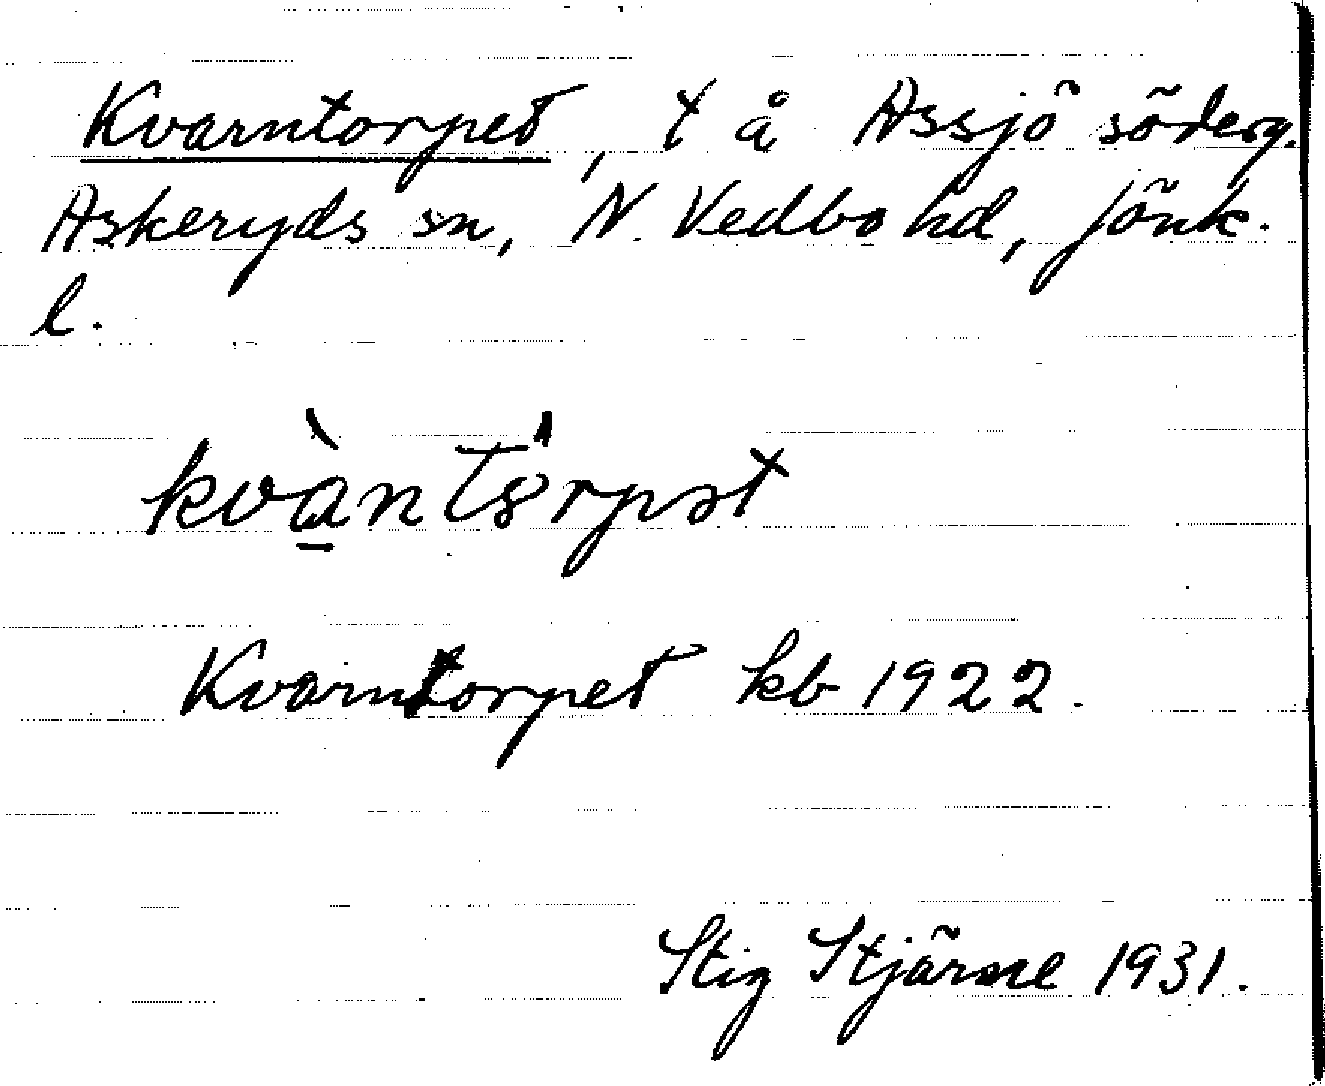 Kvarntorpet, t å Assjö söderg.
Askeryds sn, N. Vedbo hd, Jönk.
l.
kvàntórpət
Kvarntorpet kb 1922.
Stig Stjärne 1931.